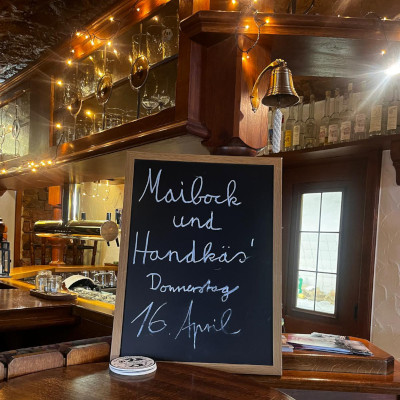 Maibock
und
Handkäs'
Donnerstag
16. April